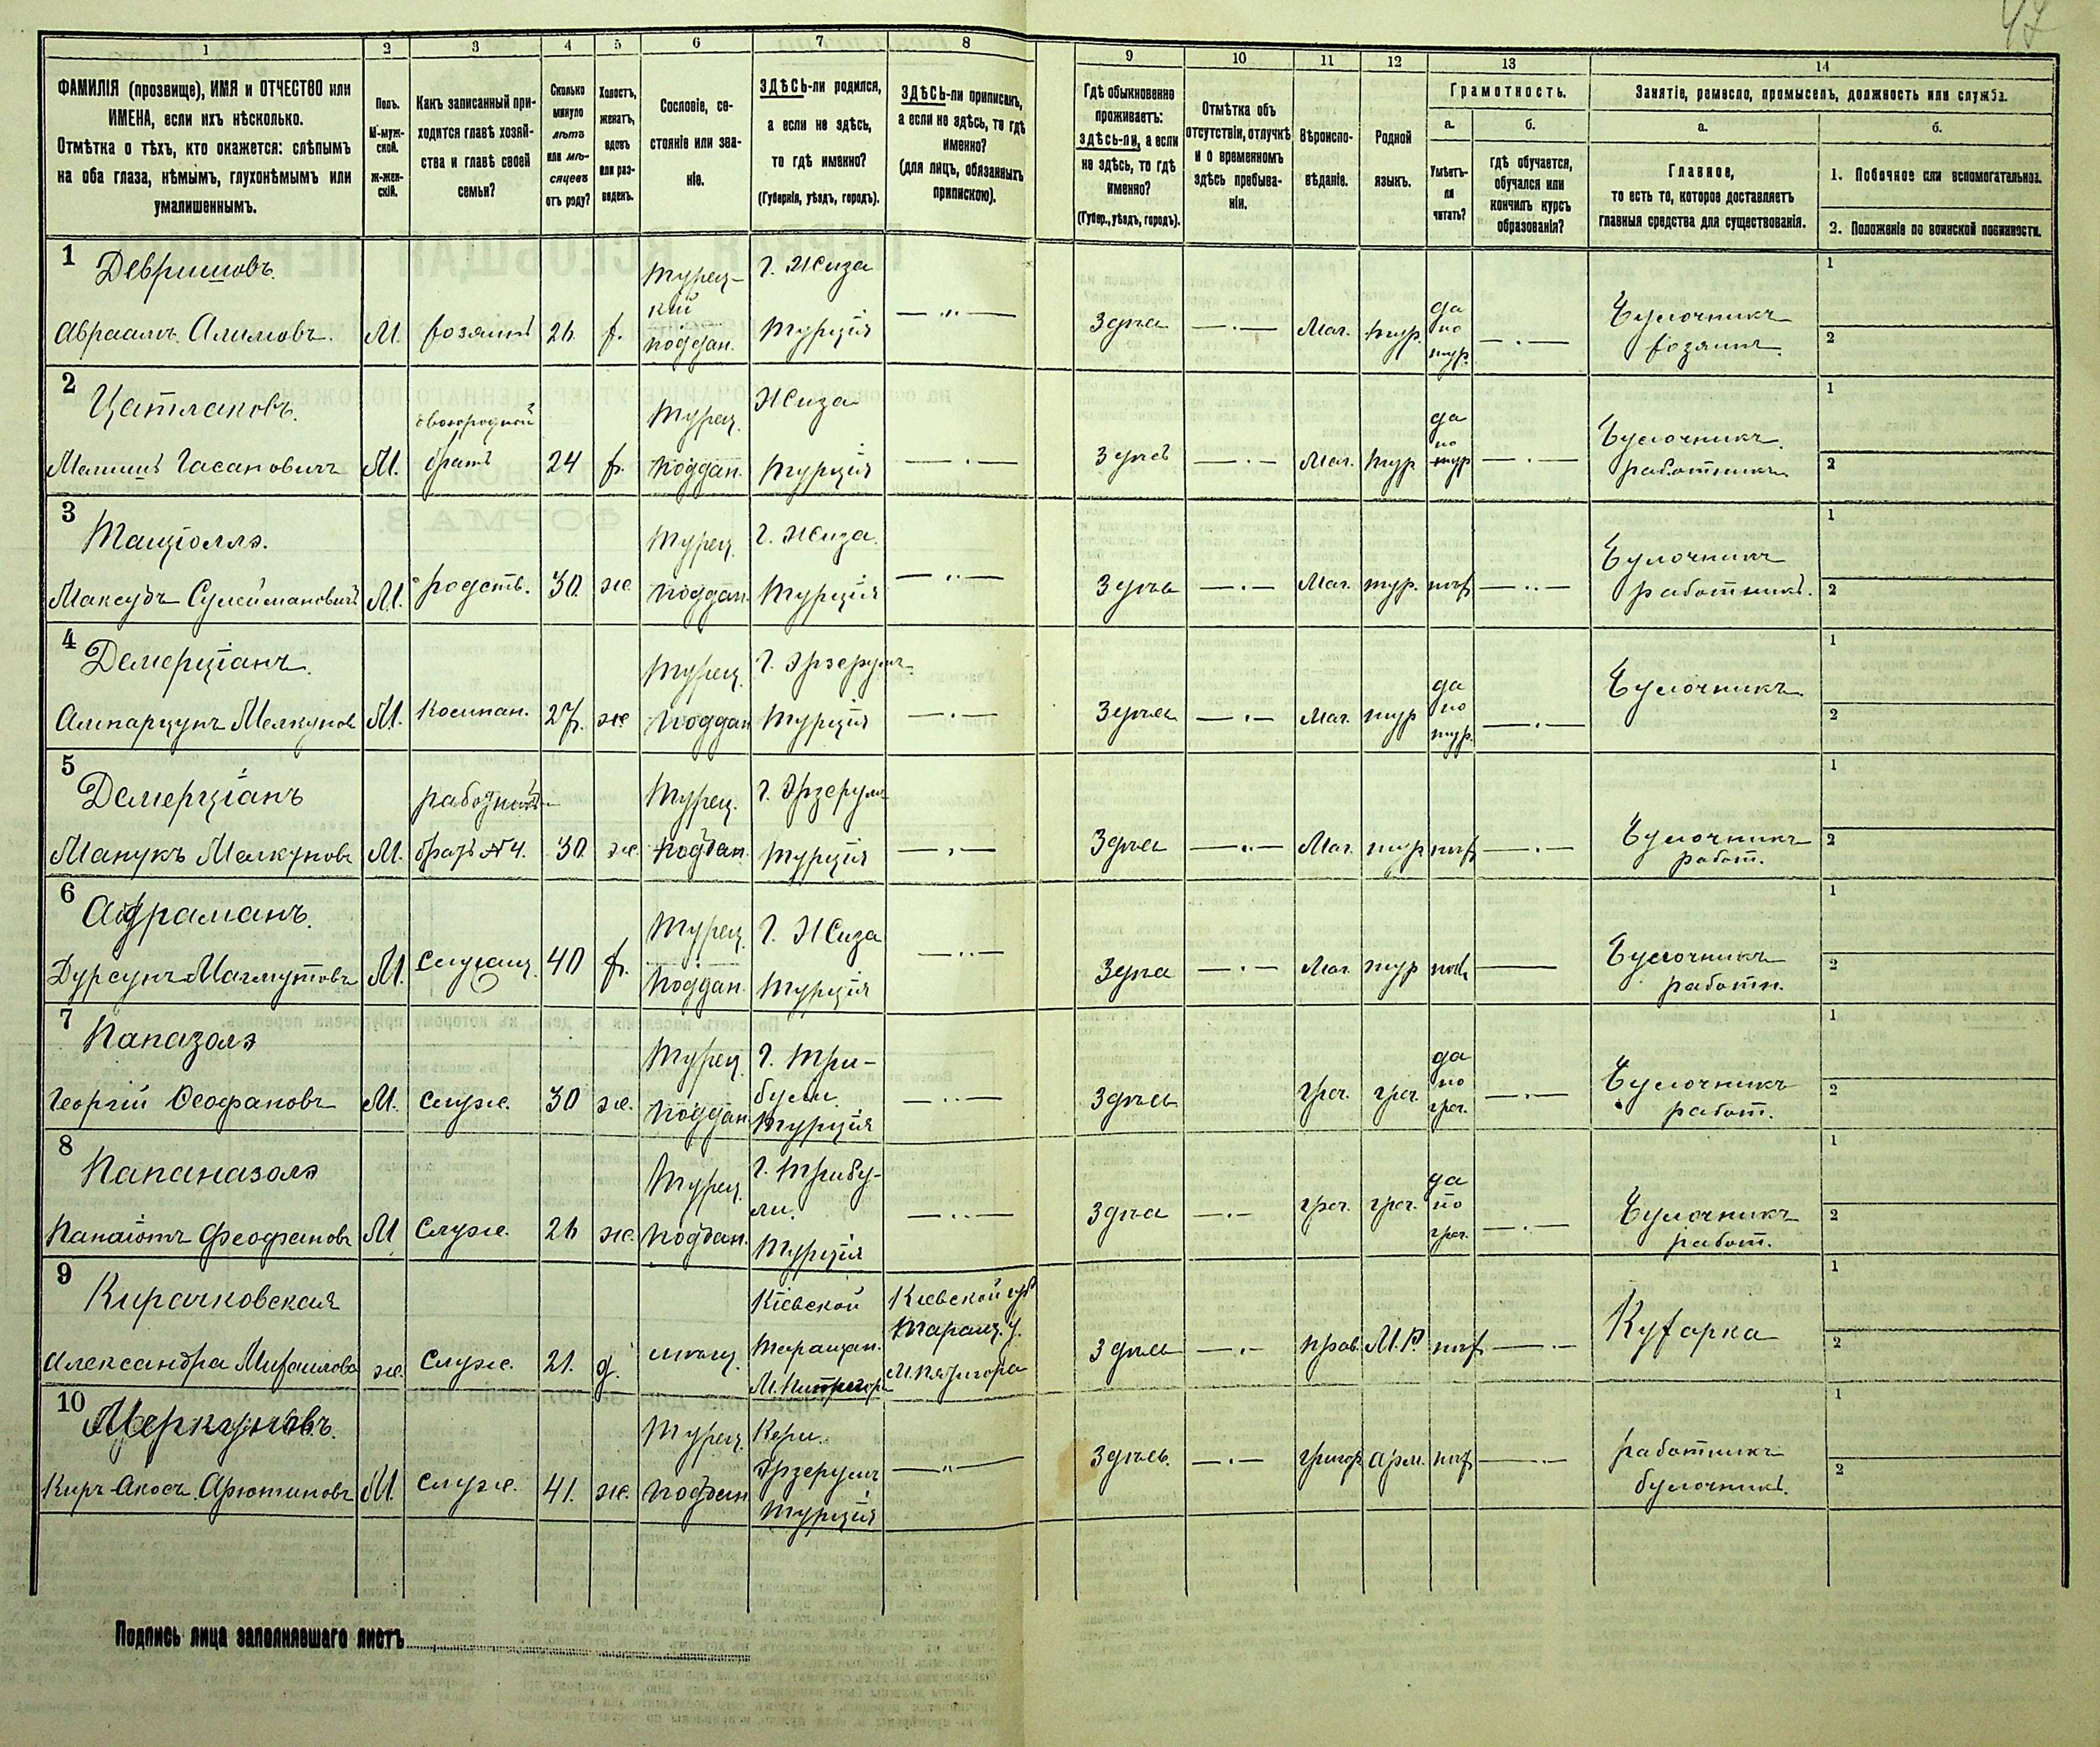 47
1 2 3 4 5 6 7 8 9 10 11 12 13 14
ФАМИЛІЯ (прозвище), ИМЯ и ОТЧЕСТВО или
ИМЕНА, если ихъ нѣсколько.
Отмѣтка о тѣхъ, кто окажется: слѣпымъ
на оба глаза, нѣмымъ, глухонѣмымъ или
умалишеннымъ.
Полъ.
М-муж-
ской.
ж-жен-
скій.
Какъ записанный при-
ходится главѣ хозяй-
ства и главѣ своей
семьи?
Сколько
минуло
лѣтъ
или мѣ-
сяцевъ
отъ роду?
Холостъ,
женатъ,
вдовъ
или раз-
веденъ.
Сословіе, со-
стояніе или зва-
ніе.
ЗДѢСЬ-ли родился,
а если не здѣсь,
то гдѣ именно?
(Губернія, уѣздъ, городъ).
ЗДѢСЬ-ли приписанъ,
а если не здѣсь, то гдѣ
именно?
(для лицъ, обязанныхъ
припискою).
Гдѣ обыкновенно
проживаетъ:
здѣсь-ли, а если
не здѣсь, то гдѣ
именно?
(Губер., уѣздъ, городъ).
Отмѣтка объ
отсутствіи, отлучкѣ
и о временномъ
здѣсь пребыва-
ніи.
Вѣроиспо-
вѣданіе.
Родной
языкъ.
Грамотность.
а.
Умѣетъ-
ли
читать?
б.
гдѣ обучается,
обучался или
кончилъ курсъ
образованія?
Занятіе, ремесло, промыселъ, должность или служба.
а.
Главное,
то есть то, которое доставляетъ
главныя средства для существованія.
б.
1. Побочное или вспомогательное.
2. Положеніе по воинской повинности.
1 Девришовъ. Турец- Г. Жиза
кій да
Абраамъ Алимовъ. М. хозяинъ 26 х. поддан. Турція Здѣсь Маг. тур. по тур. Булочникъ
хозяинъ 1 2
2 Цатлаковъ. двоюродный Турец. Жиза да
Гасановичъ М. братъ 24 х. поддан. Турція Здѣсь Маг. тур по тур Булочникъ
работникъ. 1 2
3 Турец. г. Жиза.
Максудъ Сулеймановичъ М. родств. 30 ж поддан. Турція Здѣсь Маг. тур. нѣт Булочникъ
работникъ. 1 2
4 Демерціанъ. Турец. Г. Эрзерумъ да
Мелкунов М. Компан. 27. ж поддан Турція Здѣсь Маг. тур по тур. Булочникъ. 1 2
5 Демерціанъ Турец. Г. Эрзерум
Манукъ Мелкуновъ М. братъ №4. 30 ж. поддан. Турція Здѣсь Маг. тур нѣт Булочникъ
работ. 1 2
6 Турец. Г. Жиза
Дурсунъ Магмутовъ М. 40 х. поддан. Турція Здѣсь Маг. тур нѣт Булочникъ
работн. 1 2
7 Папазолэ Турец. Г. Три- да
Георгій Ѳеофановъ М. служ. 30 ж. поддан. були. Турція Здѣсь греч. греч. по греч. Булочникъ
работ. 1 2
8 Папаназолэ Турец. Г. Трибу- да
Панаіотъ Феофановъ М служ. 26 ж. поддан. ли. Турція Здѣсь греч. греч. по греч. Булочникъ
работ. 1 2
9 Кирачковская Кіевской Кіевской губ
Таращан. Таращ. у.
Александра Михаилова ж. служ. 21. д. мѣщ. М. Пятигора Здѣсь прав. М. Р. нѣт Кухарка 1 2
10 Меркуновъ. Турец.
Эрзерумъ
Арютиновъ М. служ. 41. ж. поддан Турція Здѣсь. григор. арм. нѣт работникъ
булочникъ. 1 2
Подпись лица заполнявшаго листъ